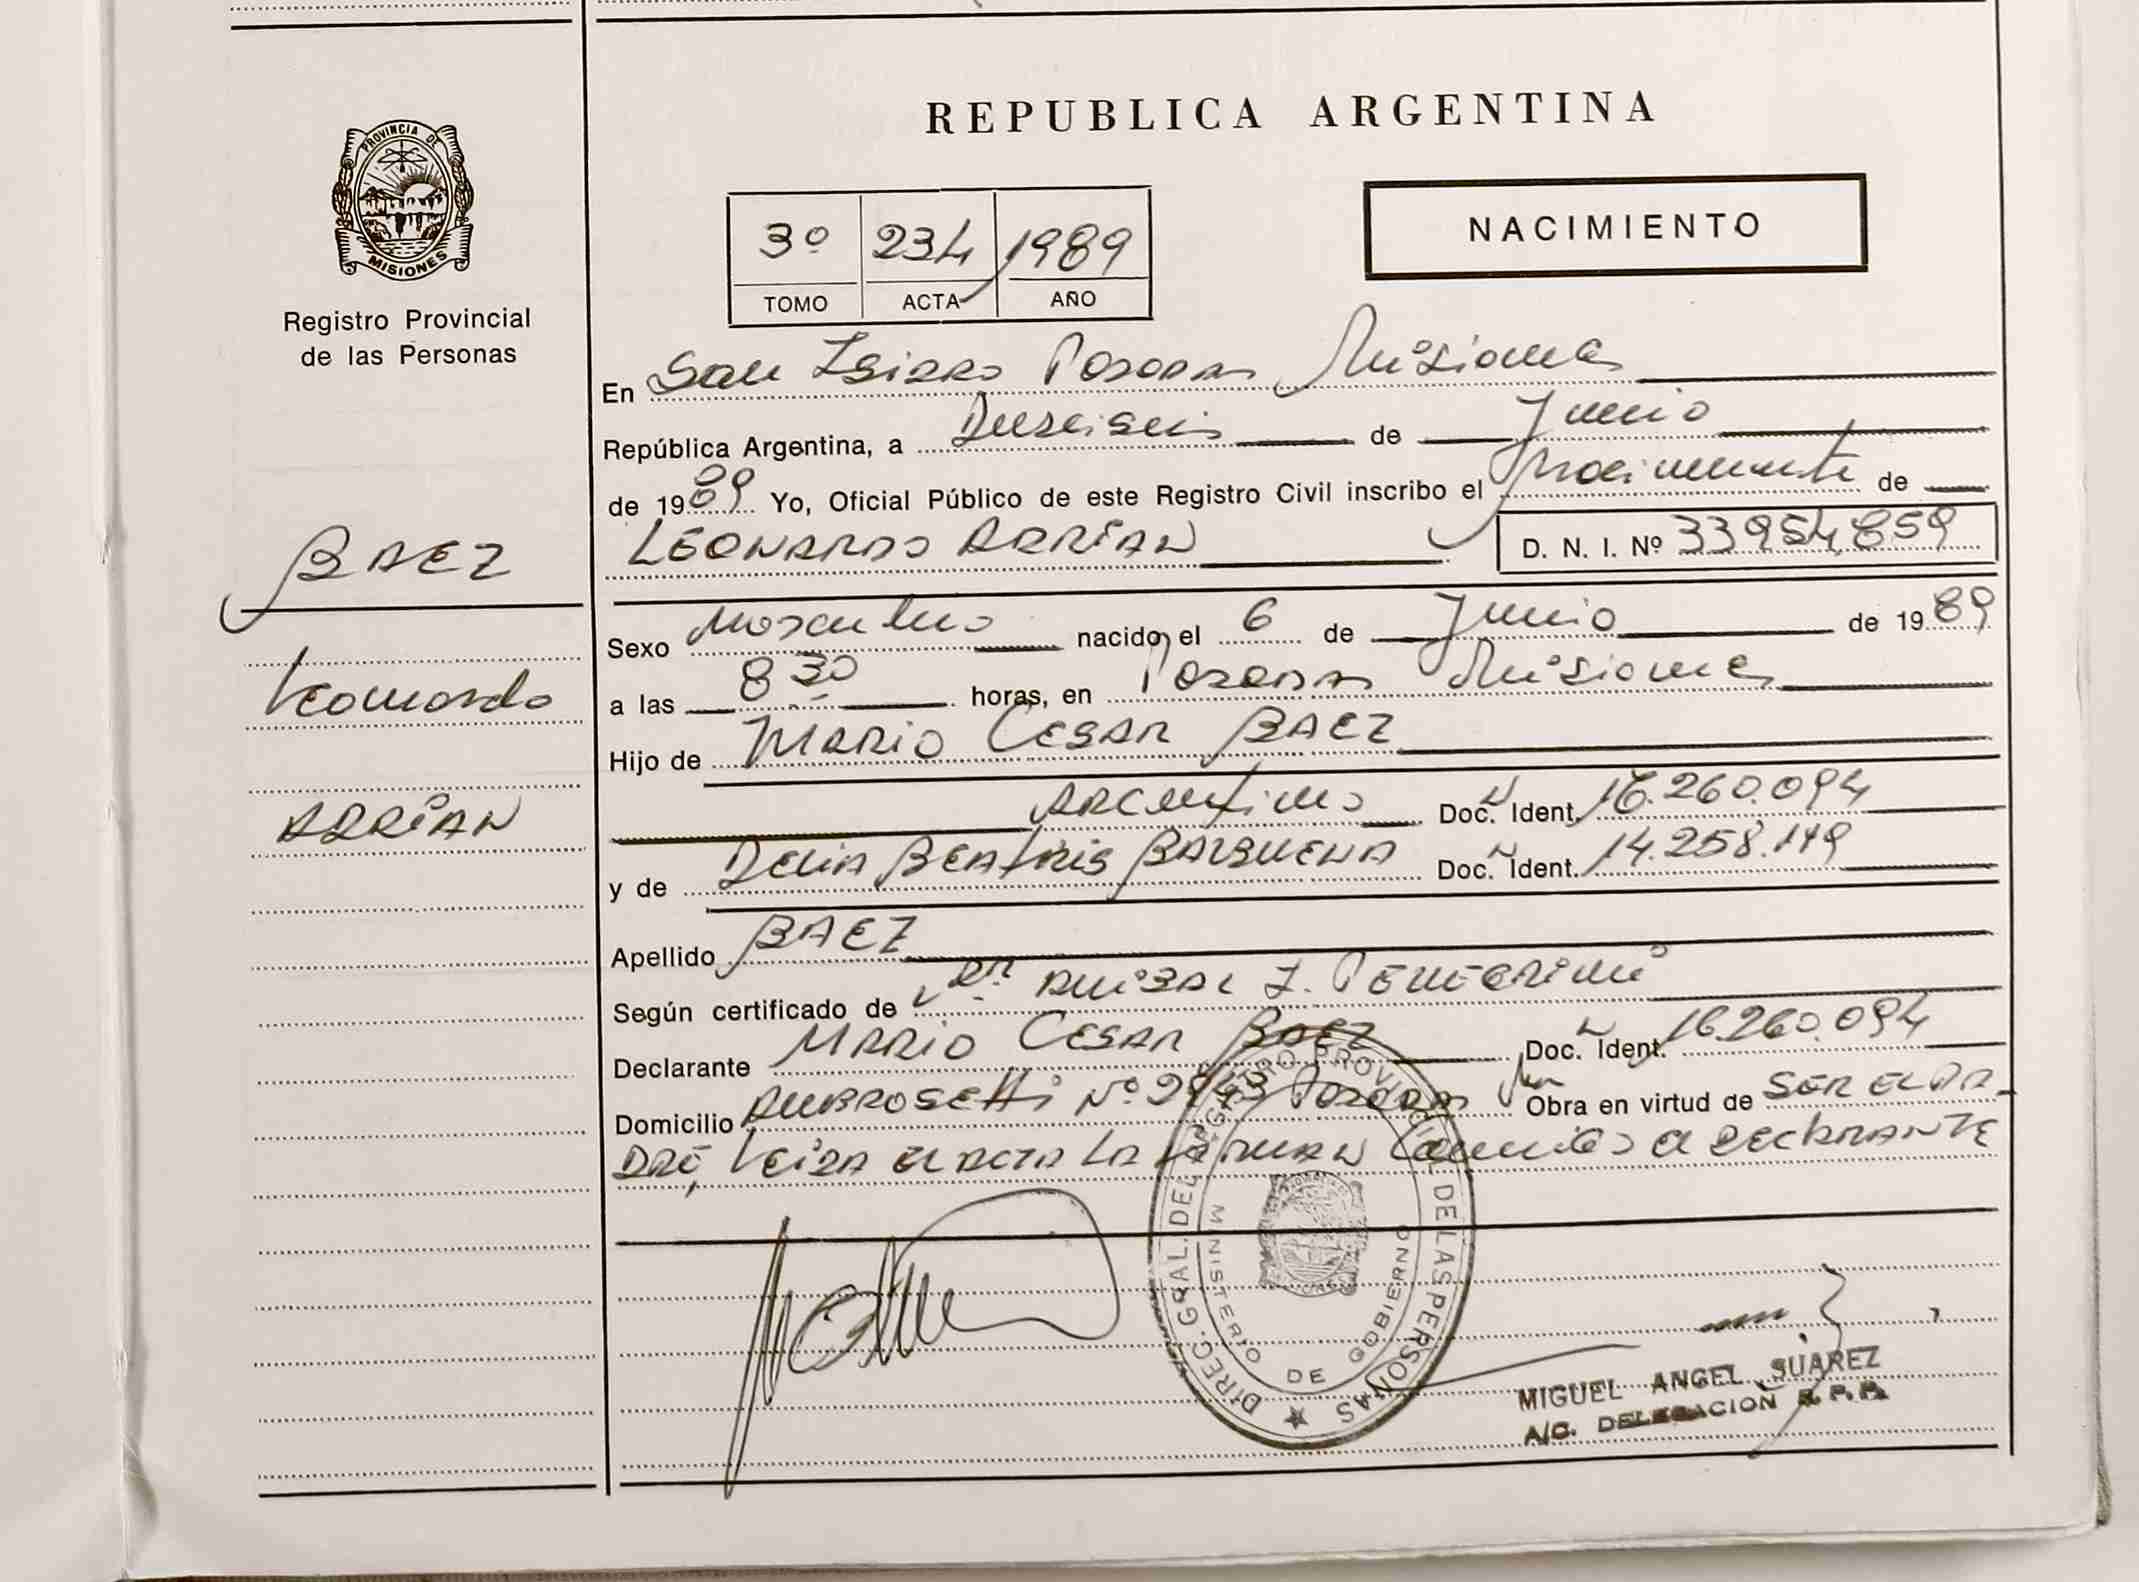 PROVINCIA DE
MISIONES
Registro Provincial
de las Personas
BAEZ
Leonardo
ADRIAN
REPUBLICA ARGENTINA
3º 234 1989
TOMO ACTA AÑO
NACIMIENTO
En San Isidro Posadas Misiones
República Argentina, a Dieciseis de Junio
de 1989 Yo, Oficial Público de este Registro Civil inscribo el nacimiento de
LEONARDO ADRIAN D. N. I. Nº 33954,859
Sexo Masculino nacido el 6 de Junio de 1989
a las 8 30 horas, en Posadas Misiones
Hijo de MARIO CESAR BAEZ
Argentino Doc. Ident. 16.260.094
y de DELIA BEATRIS BALBUENA Doc. Ident. 14.258.149
Apellido BAEZ
Según certificado de DR. ANIBAL J.
Declarante MARIO CESAR BAEZ Doc. Ident. 16.260.094
Domicilio AMBROSETTI Nº Posadas Obra en virtud de SER EL PA-
DRE, LEIDA EL ACTA LA FIRMAN CONMIGO EL DECLARANTE
DIREC. GRAL. DEL REGISTRO PROVINCIAL DE LAS PERSONAS
MINISTERIO DE GOBIERNO
MIGUEL ANGEL SUAREZ
A/C. DELEGACION R. P. P.